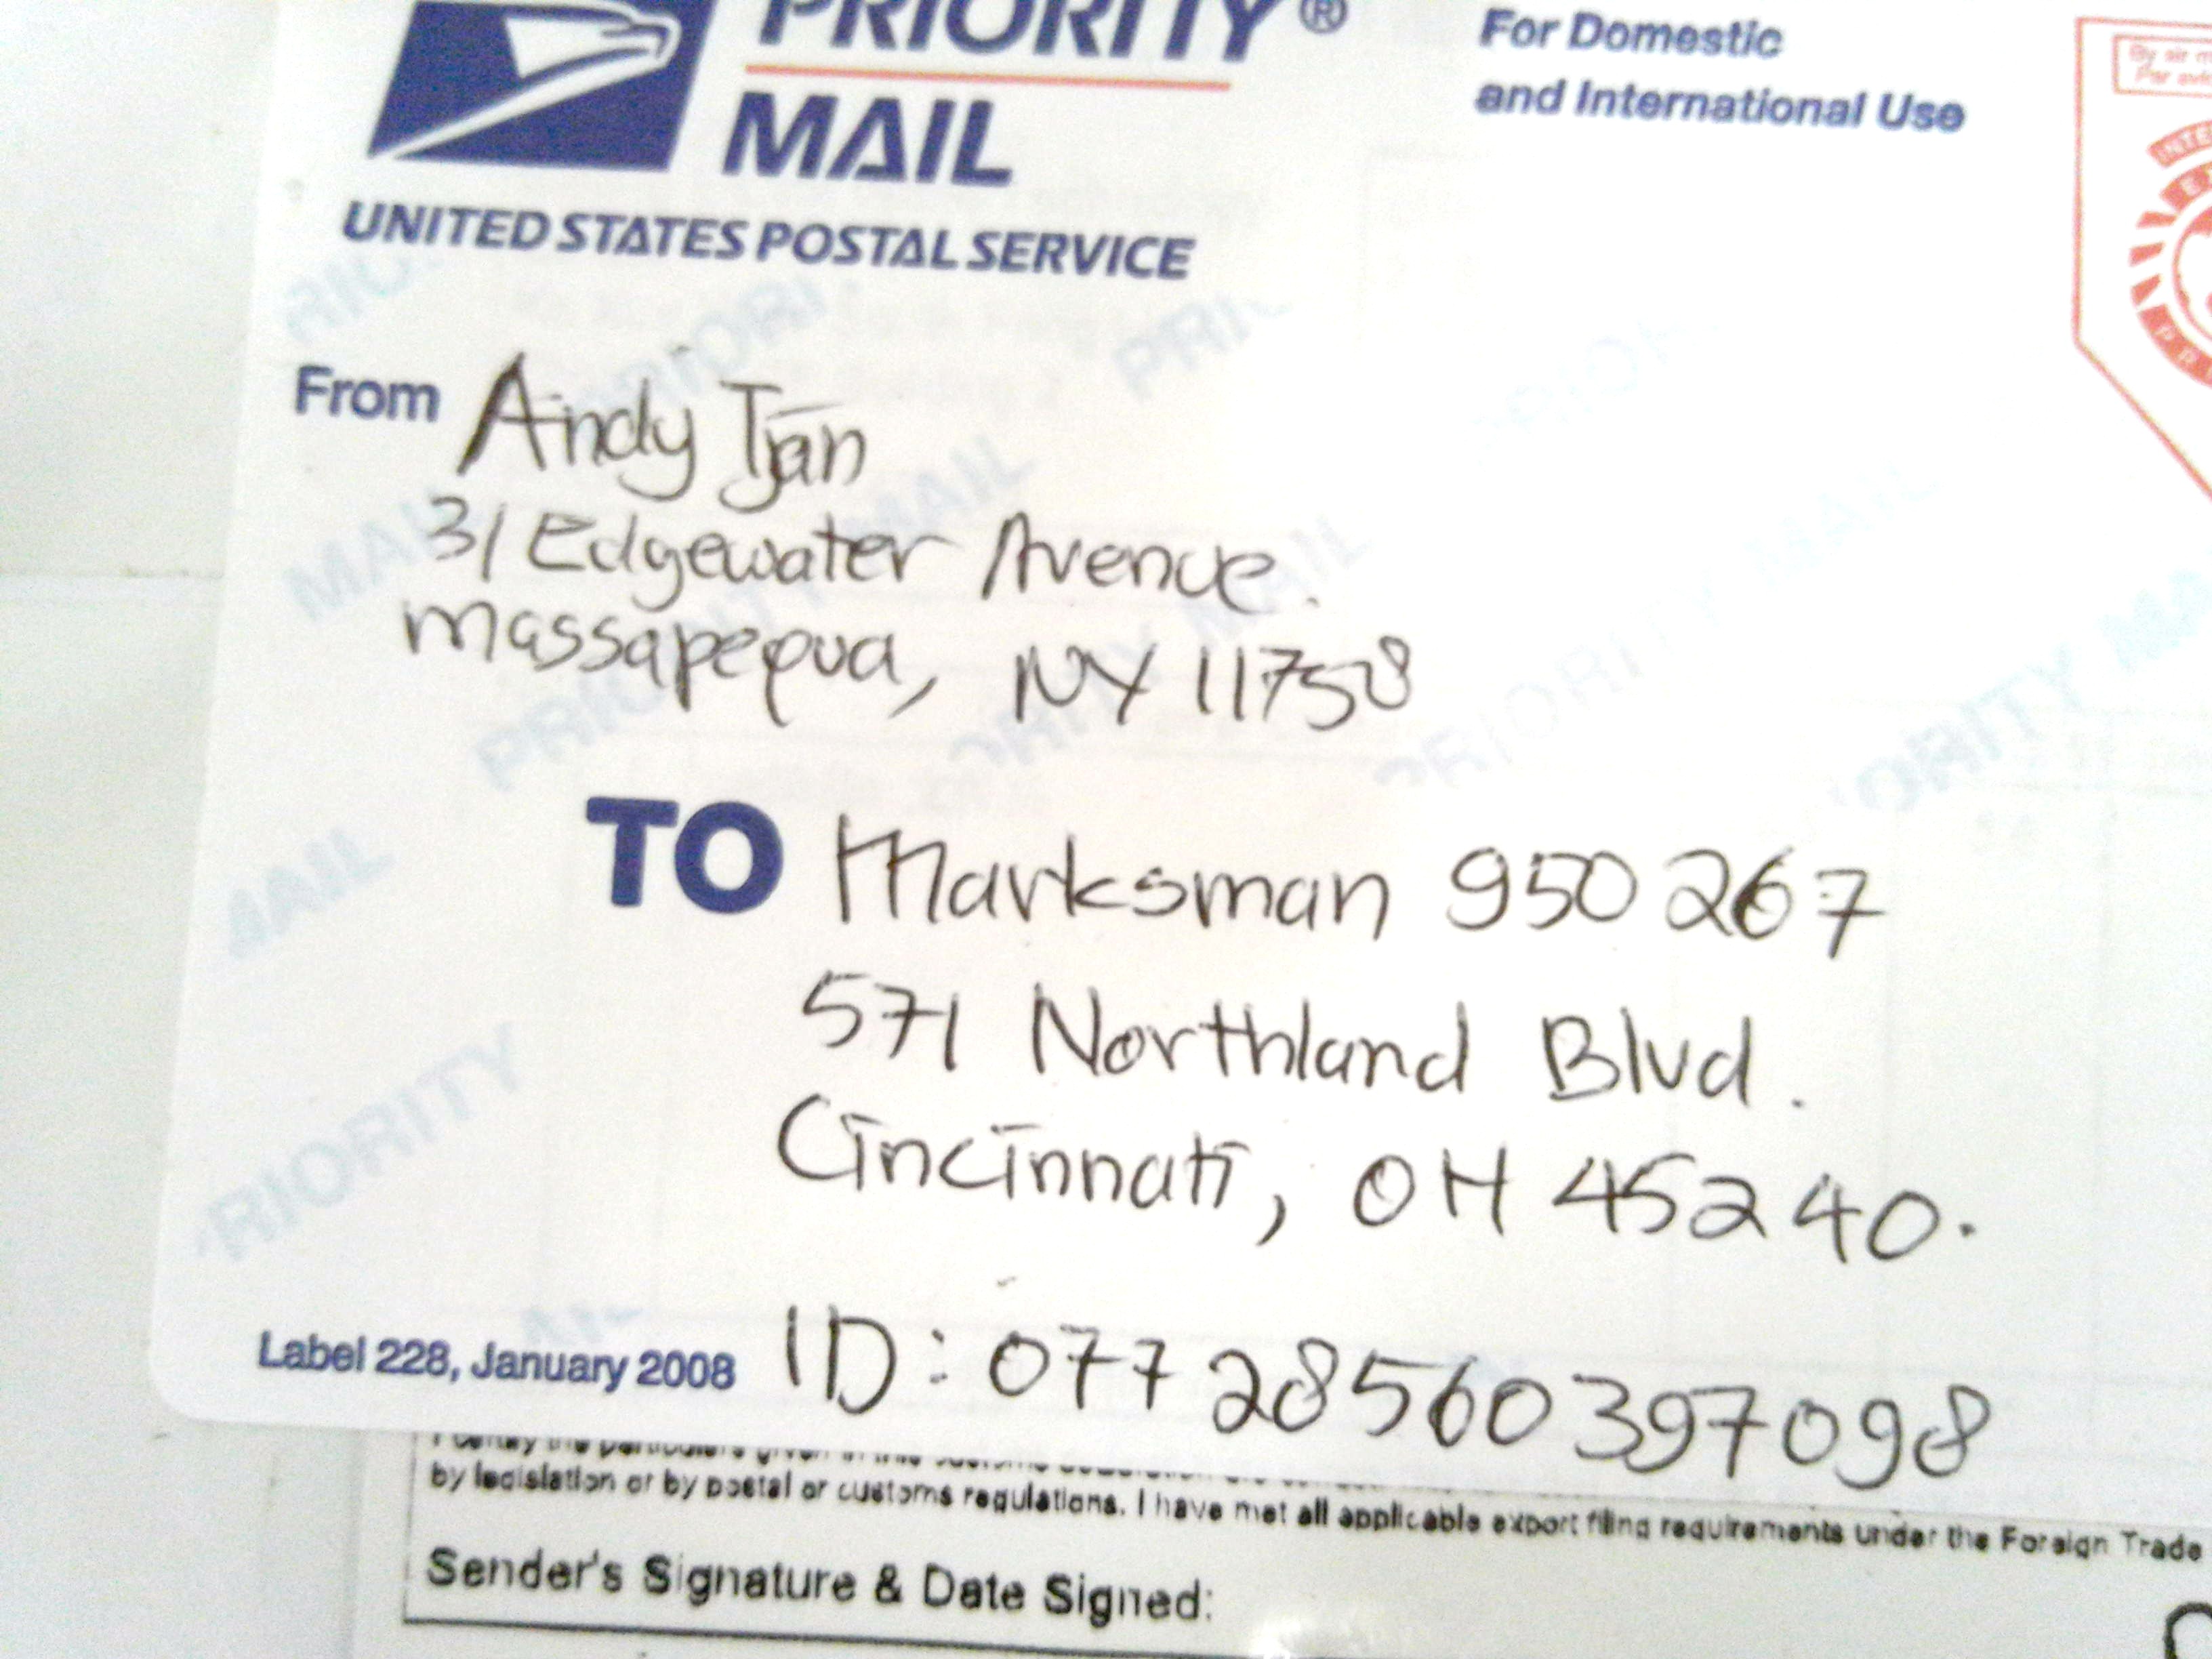 PRIORITY®
MAIL
UNITED STATES POSTAL SERVICE
For Domestic
and International Use
By air
Par
From Andy Tjan
31 Edgewater Avenue.
Massapequa, NY 11758
TO Marksman 950267
571 Northland Blvd.
Cincinnati, OH 45240.
ID: 07728560397098
Label 228, January 2008
I certify the particulars given in this customs
by legislation or by postal or customs regulations. I have met all applicable export filing requirements under the Foreign Trade
Sender's Signature & Date Signed: